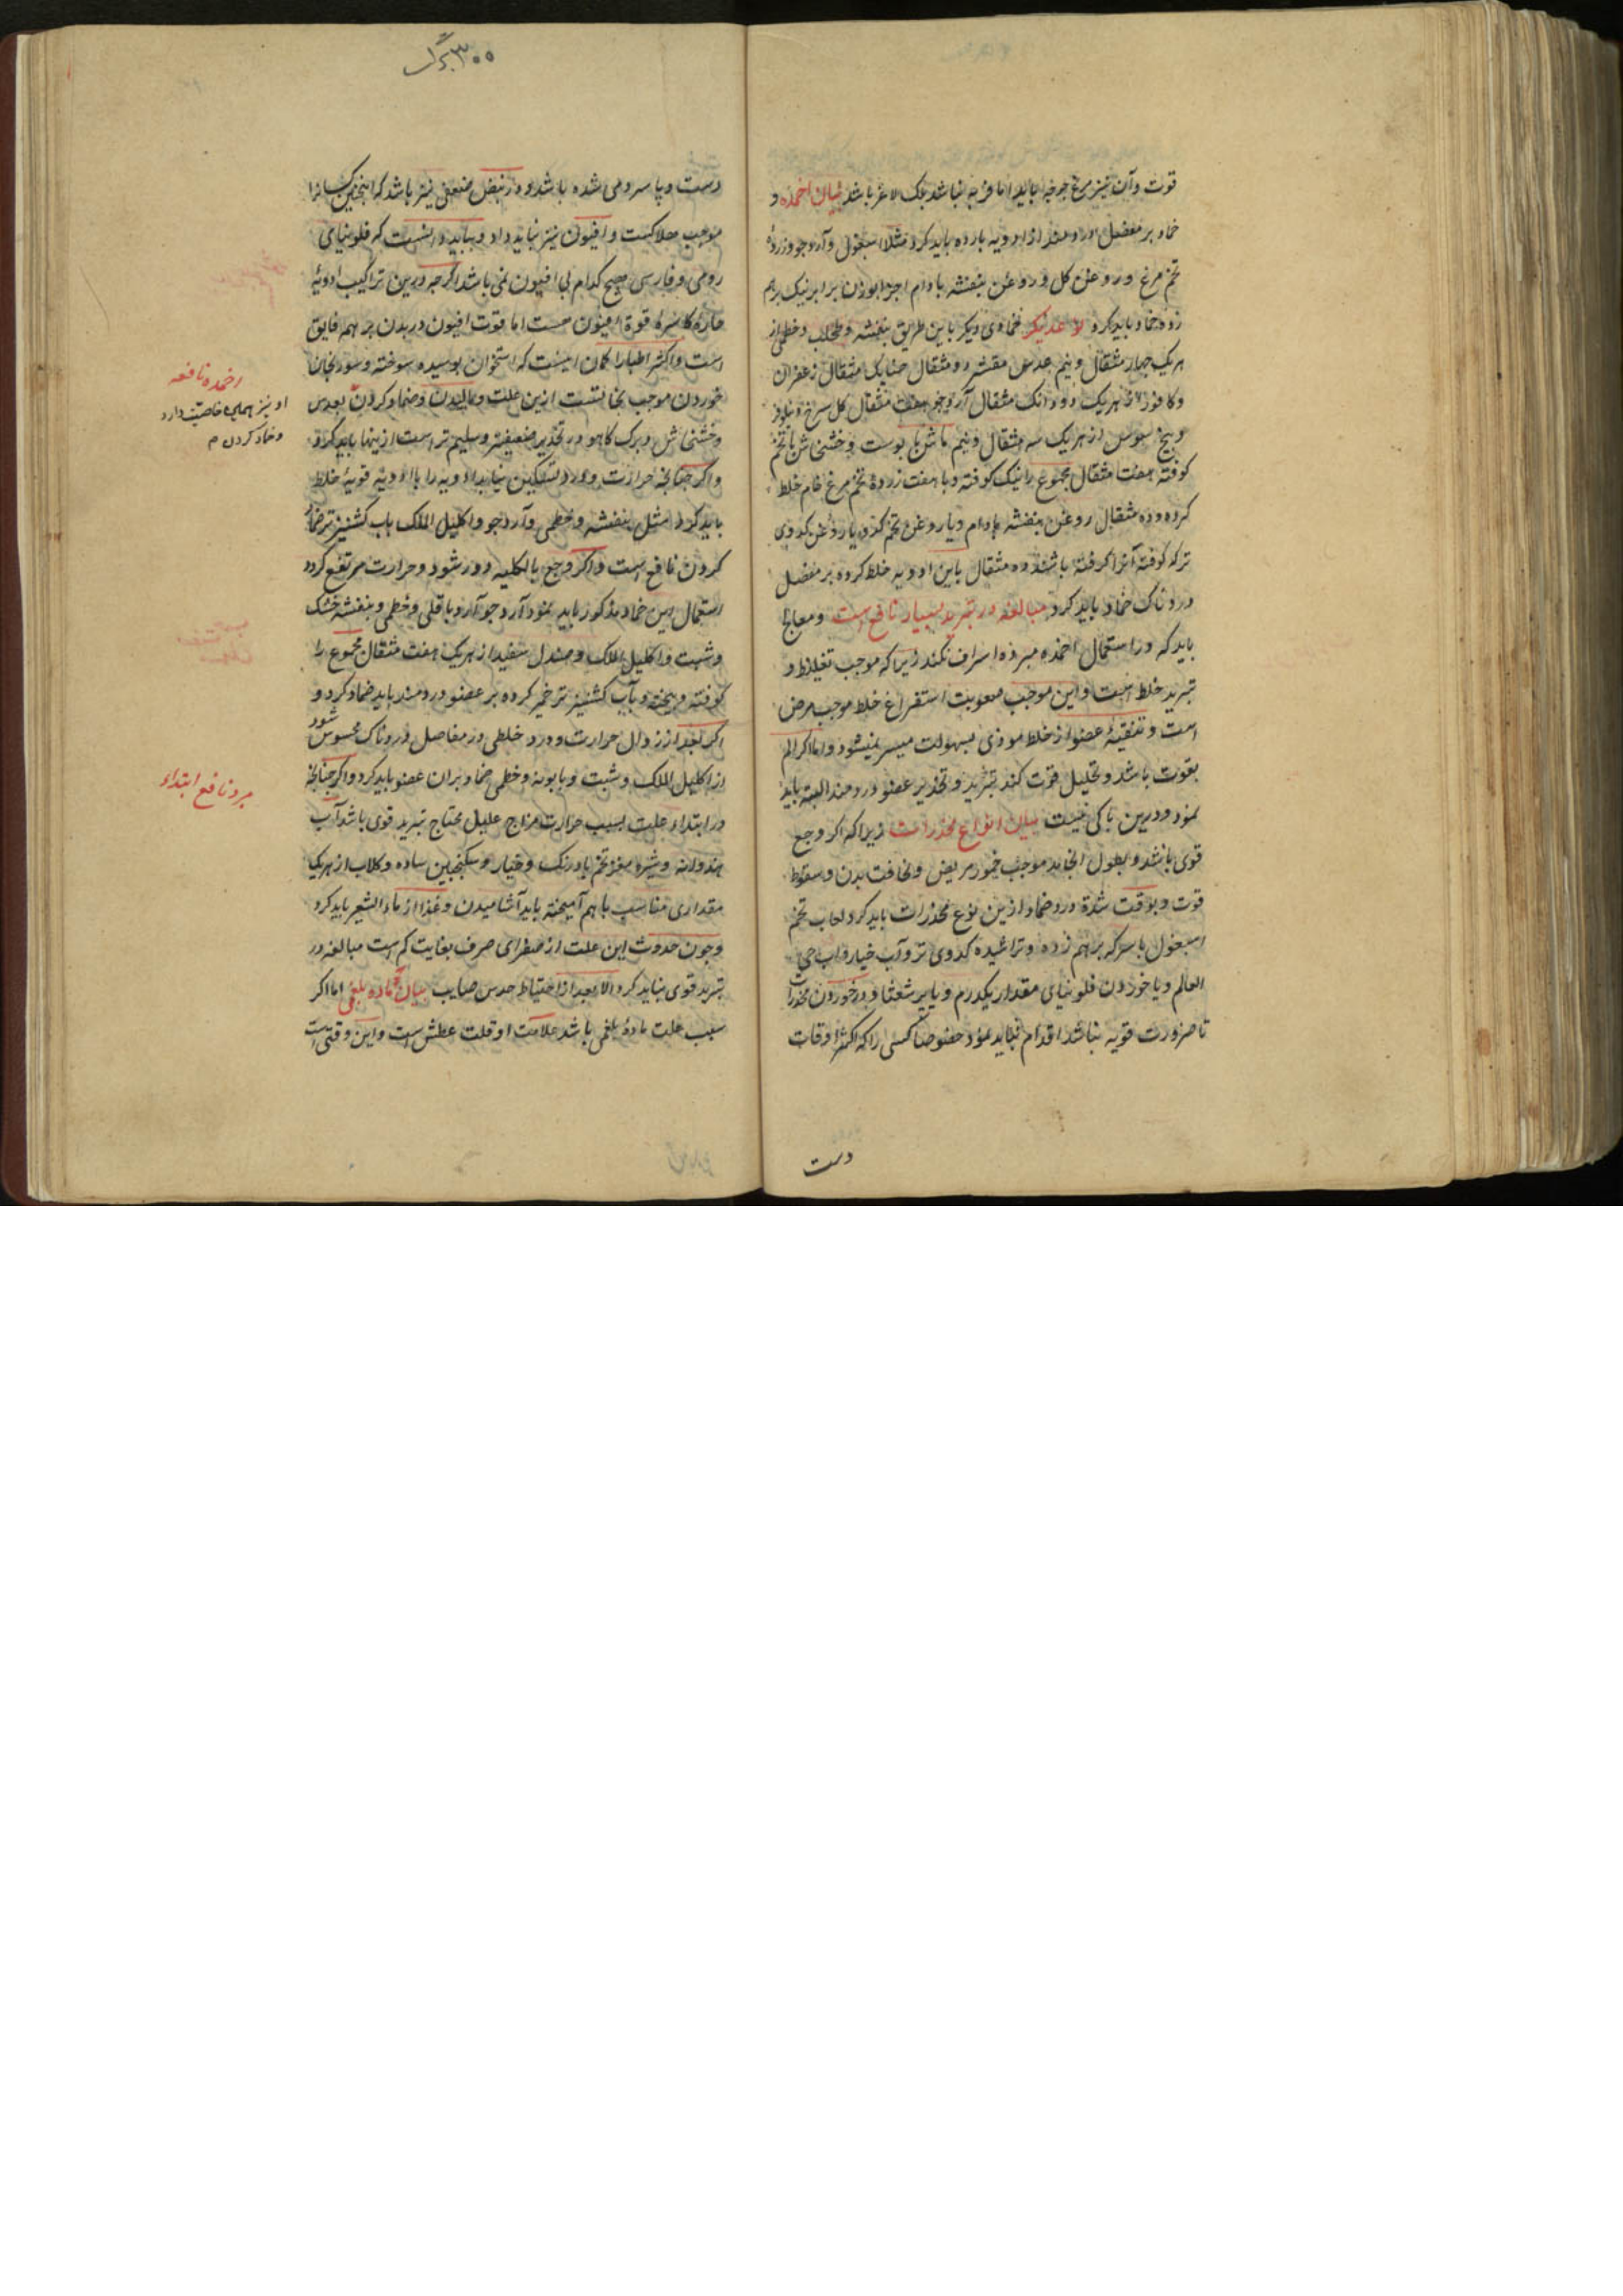 قوت وآن نیز مرغ جوجه باید اما فربه نباشد بلک لاغر باشد بیان اضمده و
ضماد بر مفصل دردمند از ادویه بارده باید کرد مثلا اسبغول وآرد جو وزردهٔ
تخم مرغ و روغن کل و روغن بنفشه بادام اجزا بوزن برابر نیک برهم
زده ضماد باید کرد ضمادی دیکر باین طریق بنفشه وطحلب وخطمی از
هریک چهار مثقال ونیم عدس مقشر دو مثقال یک مثقال زعفران
وکافور از هریک دو دانک مثقال آرد جو هفت مثقال کل سرخ ونیلوفر
وبیخ سوس از هریک سه مثقال ونیم پوست وخشخاش باتخم
کوفته هفت مثقال مجموع را نیک کوفته وبا هفت زردهٔ تخم مرغ خام خلط
کرده وده مثقال روغن بنفشه بادام ویا روغن تخم کدو یا روغن کدوی
ترکه کوفته آنرا کرفته باشند ده مثقال باین ادویه خلط کرده بر مفصل
دردناک ضماد باید کرد مبالغه در تبرید بسیار نافع است ومعالج
باید که در استعمال اضمده مبرده اسراف نکند زیرا که موجب تغلیظ و
تبرید خلط است واین موجب صعوبت استفراغ خلط موجب مرض
است وتنقیهٔ عضو از خلط موذی بسهولت میسر نمیشود واما اکر الم
بقوت باشد وتحلیل قوت کند تبرید وتخدیر عضو دردمند البته باید
نمود ودرین باکی نیست بیان انواع مخدرات زیرا که اکر وجع
قوی باشد وبطول انجامد موجب مریض ونحافت بدن وسقوط
قوت وبوقت شدة درد ضماد ازین نوع مخدرات باید کرد لعاب تخم
اسبغول با سرکه برهم زده وتراشیده کدوی تر وآب خیار واب حی
العالم ویا خوردن فلونیای مقدار یکدرم ویا برشعثا ودر خوردن مخدرات
تا ضرورت قویه نباشد اقدام نباید نمود خصوصا کسی را که اکثر اوقات
دست
۳۰۰ برک
دست وپا سرد می شده باشد ودر نبض ضعفی نیز باشد که اینچنین کسانرا
موجب هلاکست وافیون نیز نباید داد وبباید دانست که فلونیای
رومی وفارسی هیچ کدام بی افیون نمی باشد اکرچه درین تراکیب ادویهٔ
حاره کاسرهٔ قوة افیون هست اما قوت افیون در بدن بر همه فایق
است واکثر اطبا را کمان اینست که استخوان بوسیده سوخته وسورنجان
خوردن موجب نجاتست ازین علت ومالیدن وضماد کردن بعدس
وخشخاش وبرک کاهو در تخدیر ضعیفتر وسلیم تر است ازینها باید کرد
واکر چنانچه حرارت ودرد تسکین نیابد ادویه را با ادویه قویهٔ خلط
باید کرد مثل بنفشه وخطمی وآرد جو واکلیل الملک باب کشنیز تر ضماد
کردن نافع است واکر وجع بالکلیه دور شود وحرارت مرتفع کردد
استعمال این ضماد مذکور باید نمود آرد جو آرد باقلی وخطمی وبنفشه خشک
وشبت واکلیل الملک وصندل سفید از هریک هفت مثقال مجموع را
کوفته وبیخته وبآب کشنیز تر خمیر کرده بر عضو دردمند باید ضماد کرد و
اکر بعد از زوال حرارت ودرد خلطی در مفاصل دردناک محسوس شود
از اکلیل الملک وشبت وبابونه وخطمی ضماد بران عضو باید کرد واکر چنانچه
در ابتداء علت بسبب حرارت مزاج علیل محتاج تبرید قوی باشد آب
هندوانه وشیره مغز تخم بادرنک وخیار وسکنجبین ساده وکلاب از هریک
مقداری مناسب باهم آمیخته باید آشامیدن وغذا از ماء الشعیر باید کرد
وچون حدوث این علت از صفرای صرف بغایت کم است مبالغه در
تبرید قوی نباید کرد الا بعد از احتیاط حدس صایب بیان ماده بلغمی اما اکر
سبب علت مادهٔ بلغمی باشد علامت او قلت عطش است واین وقتیست
اضمده نافعه
او نیز همین خاصیت دارد
وضماد کردن م
مبرد نافع ابتداء